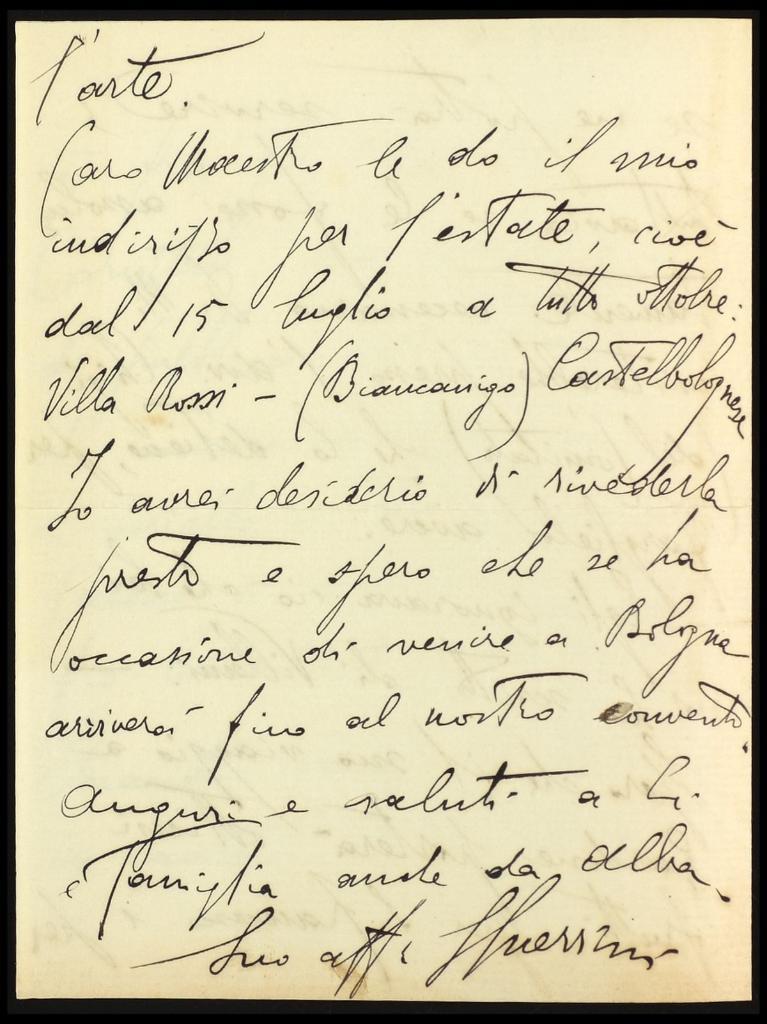 l'arte.
Caro Maestro le do il mio
indirizzo per l'estate, cioè
dal 15 luglio a tutto ottobre:
Villa Rossi - (Biancanigo) Castelbolognese
Io avrei desiderio di rivederla
presto e spero che se ha
occasione di venire a Bologna
arriverà fino al nostro convento.
Auguri e saluti a Lei
e famiglia anche da Alba.
Suo aff. Guerrini